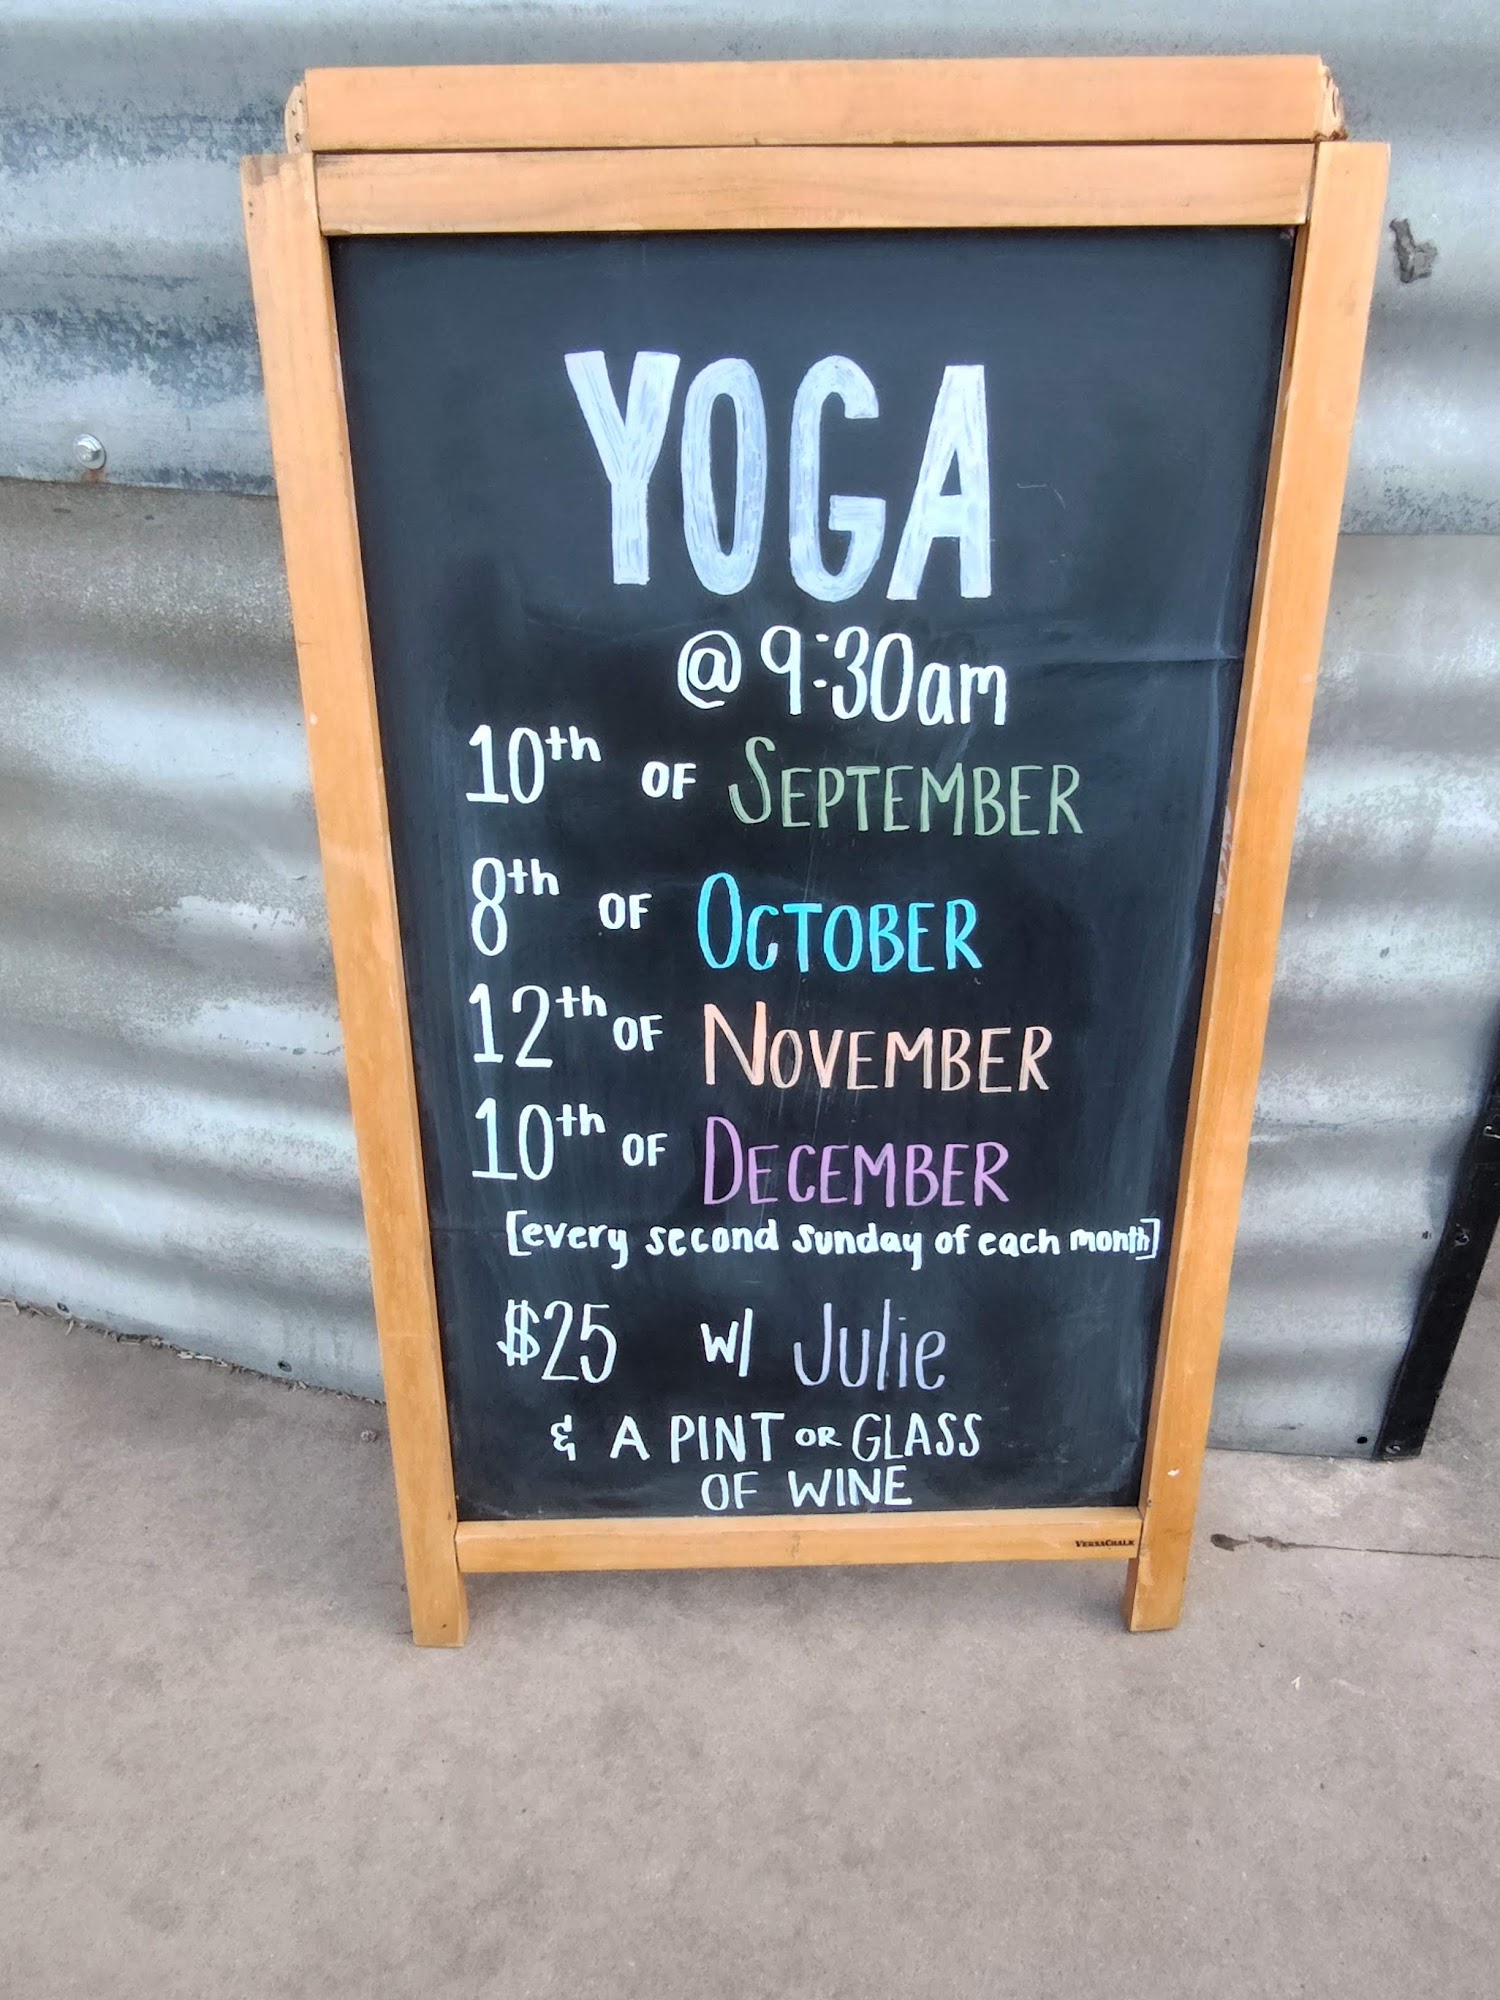 YOGA
@ 9:30am
10th OF SEPTEMBER
8th OF OCTOBER
12th OF NOVEMBER
10th OF DECEMBER
[every second Sunday of each month]
$25 w/ Julie
& A PINT OR GLASS
OF WINE
VERSACHALK